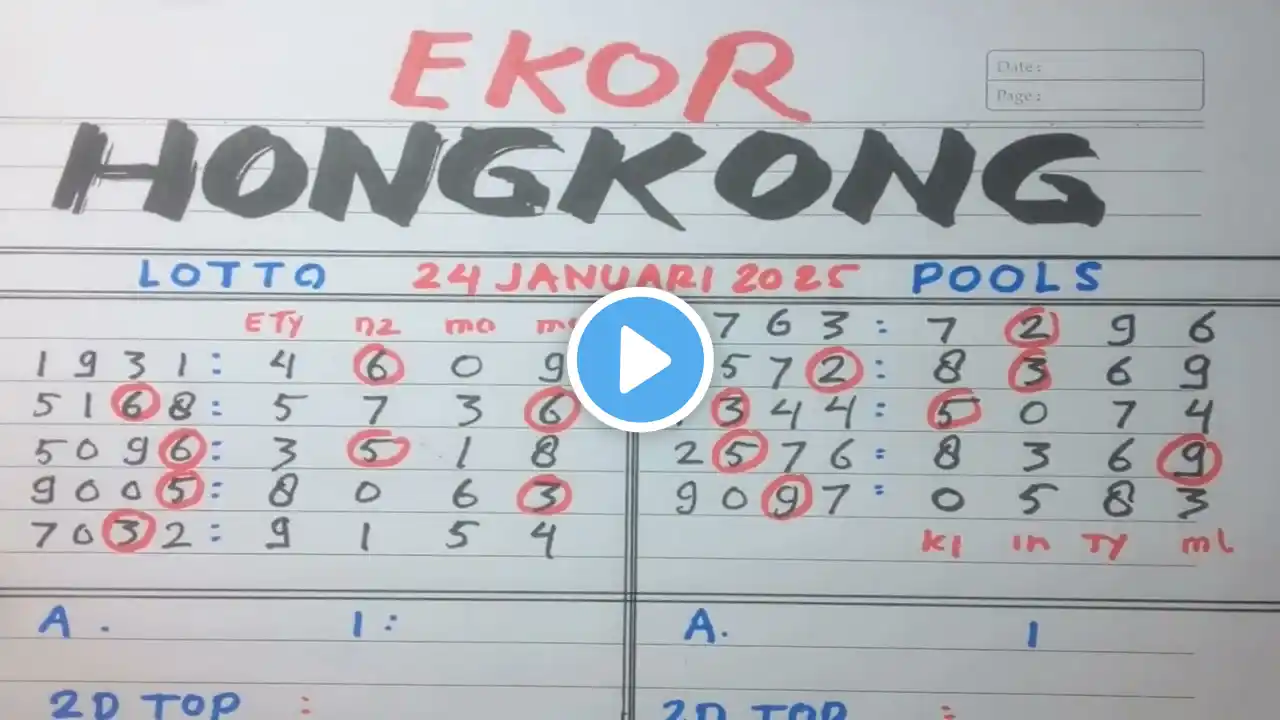 EKOR
Date:
Page:
HONGKONG
LOTTO 24 JANUARI 2025 POOLS
ETY nz mo
1 9 3 1 : 4 6 0 9
5 1 6 8 : 5 7 3 6
5 0 9 6 : 3 5 1 8
9 0 0 5 : 8 0 6 3
7 0 3 2 : 9 1 5 4
7 6 3 : 7 2 9 6
5 7 2 : 8 3 6 9
3 4 4 : 5 0 7 4
2 5 7 6 : 8 3 6 9
9 0 9 7 : 0 5 8 3
KI in TY ml
A. 1:
2D TOP :
A. 1
2D TOP :